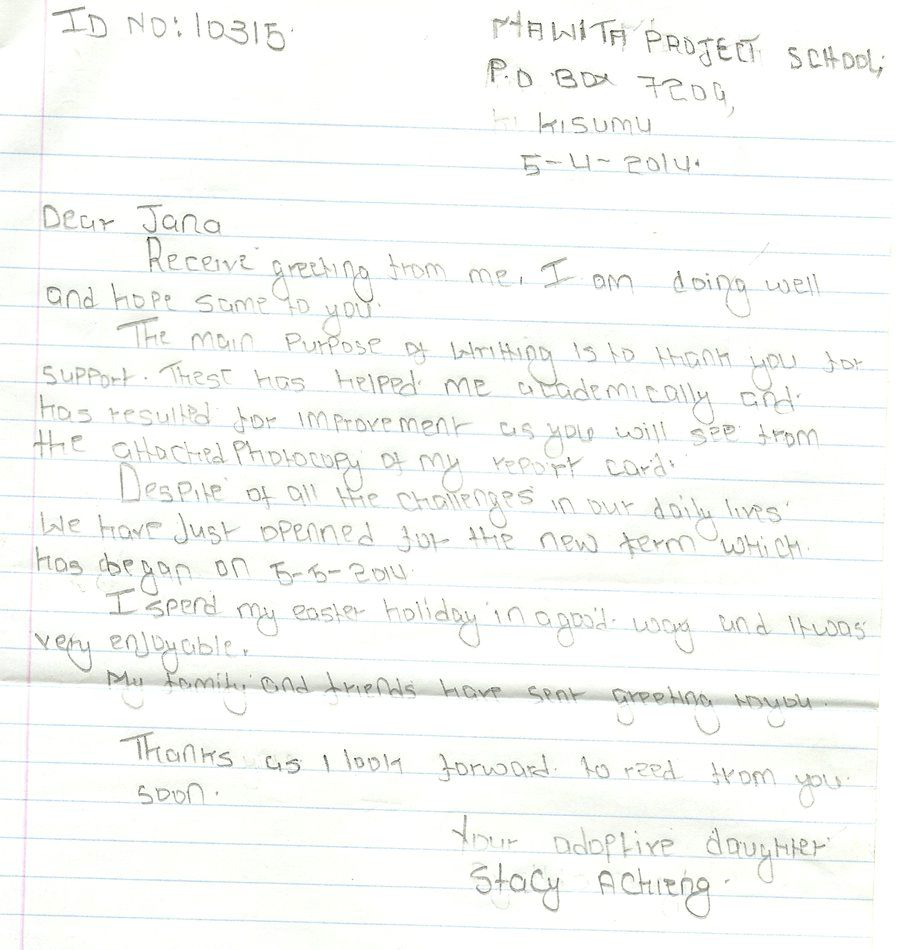 ID NO: 10315
MAWITA PROJECT SCHOOL,
P.O BOX 7209,
KISUMU
5-4-2014.
Dear Jana
Receive greeting from me. I am doing well
and hope same to you.
The main purpose of writting is to thank you for
support. These has helped me academically and
has resulted for improvement as you will see from
the attached photocopy of my report card.
Despite of all the challenges in our daily lives
We have just openned for the new term which
has began on 5-5-2014
I spend my easter holiday in a good way and it was
very enjoyable.
My family and friends have sent greeting to you.
Thanks as I look forward to reed from you
soon.
Your adoptive daughter
Stacy Achieng.